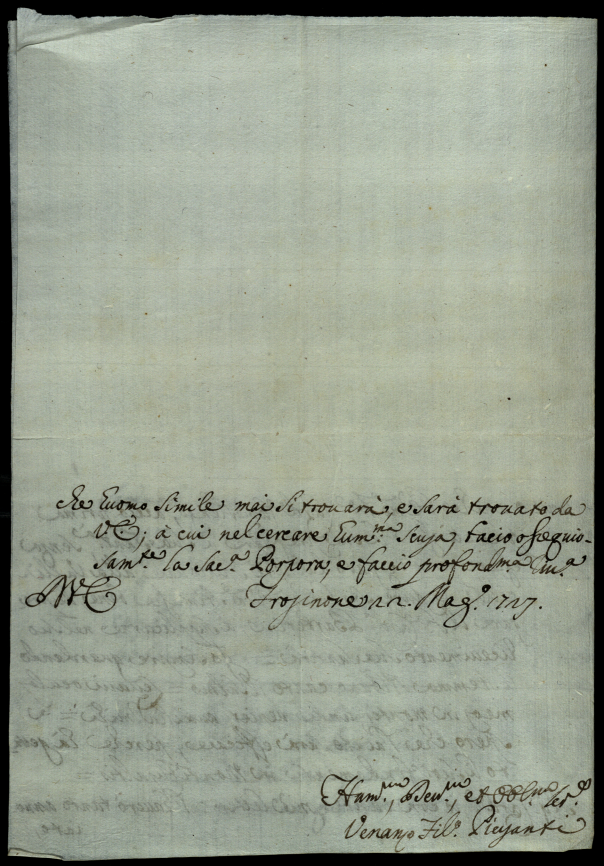 che huomo simile mai si trouarà, e sarà trouato da
V.E.; à cui nel cercare hum.ma scusa, bacio ossequio-
sam.te la Sac.a Porpora, e faccio profond.ma riu.a
D.V.E. Frosinone 22. Mag.o 1727.
Hum.mo, Deu.mo, et Obl.mo Ser.e
Venanzo Fil.o Piersanti